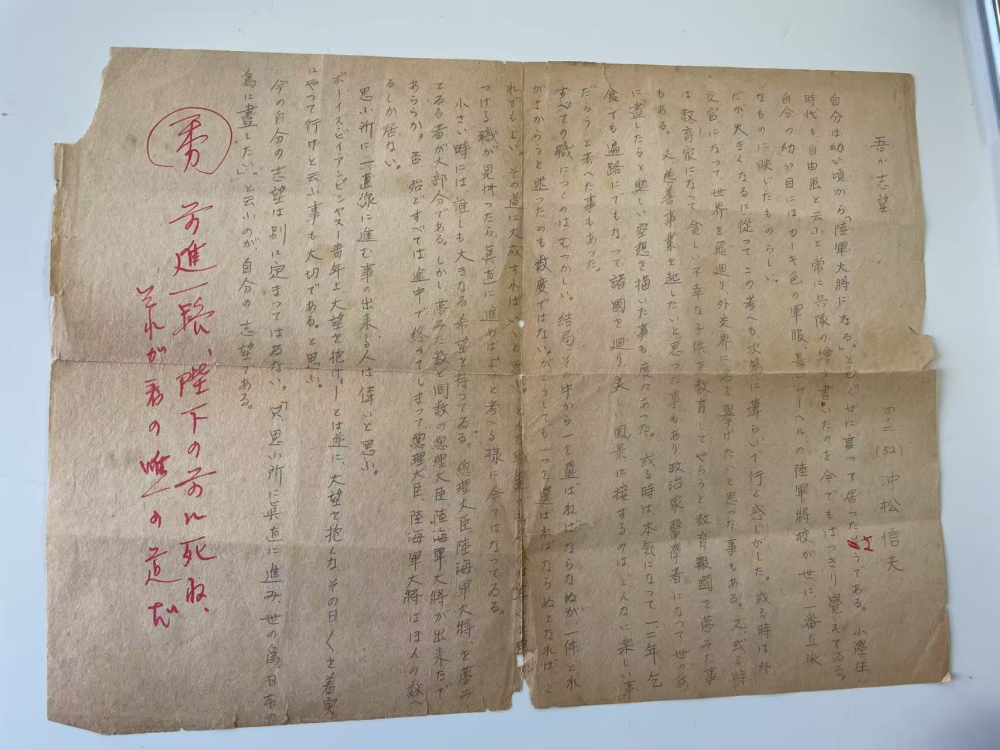 吾が志望
四ノ二(52)沖松信夫
自分は幼い頃から「陸軍大将になる」と口ぐせに言って居ったさうである。小學生
時代も自由画と云ふと常に兵隊の繪を書いたのを今でもはっきり覺えてゐる。
自分の幼い目にはカーキ色の軍服、長いサーベルの陸軍將校が世に一番立派
なものに映じたものらしい。
だが大きくなるに從ってこの考へも次第に薄らいで行く感じがした。或る時は外
交官になって世界を飛廻り外交界に名を擧げたいと思った事もある。又或る時
は教育家になって貧しい不幸な子供を教育してやらうと教育報國を夢みた事
もある。又慈善事業を起したいと思った事もあり政治家醫學者になって世の為
に盡したらと樂しい空想を描いた事も一度だあった。或る時は本気になって一二年乞
食でも遍路にでもなって諸國を廻り美しい風景に接するのはどんなに楽しい事
だらうと考へた事もあった。
すべての職につくのはむつかしい。結局その中から一を選ばねばならぬが一体どれ
がよからうと迷ったのも数度ではない。がどうしても一つを選ばねばならぬとなればど
れでもよい。その道に大成すればいいと
つける職が見付ったら眞直に進めばよいと考へる様に今ではなってゐる。
小さい時には誰しも大きなる希望を持つてゐる。總理大臣、陸海軍大将、を夢み
てゐる者が大部分である。しかし夢みた数と同数の總理大臣陸海軍大將が出來たで
あらうか。否 殆どすべては途中で終ってしまって總理大臣、陸海軍大將はほんの数へ
るしか居ない。
思ふ所に一直線に進む事の出來る人は偉いと思ふ。
ボーイズ、ビイ、アンビシヤスー青年よ大望を抱けーとは逆に、大望を抱くなその日〱を着実
にやって行けと云ふ事も大切である。と思ふ。
今の自分の志望は別に定まってはゐない。「只思ふ所に眞直に進み世の為日本の
為に盡したい」。と云ふのが自分の志望である。
秀
前進一路、陛下の前に死ね、
それが君の唯一の道だ